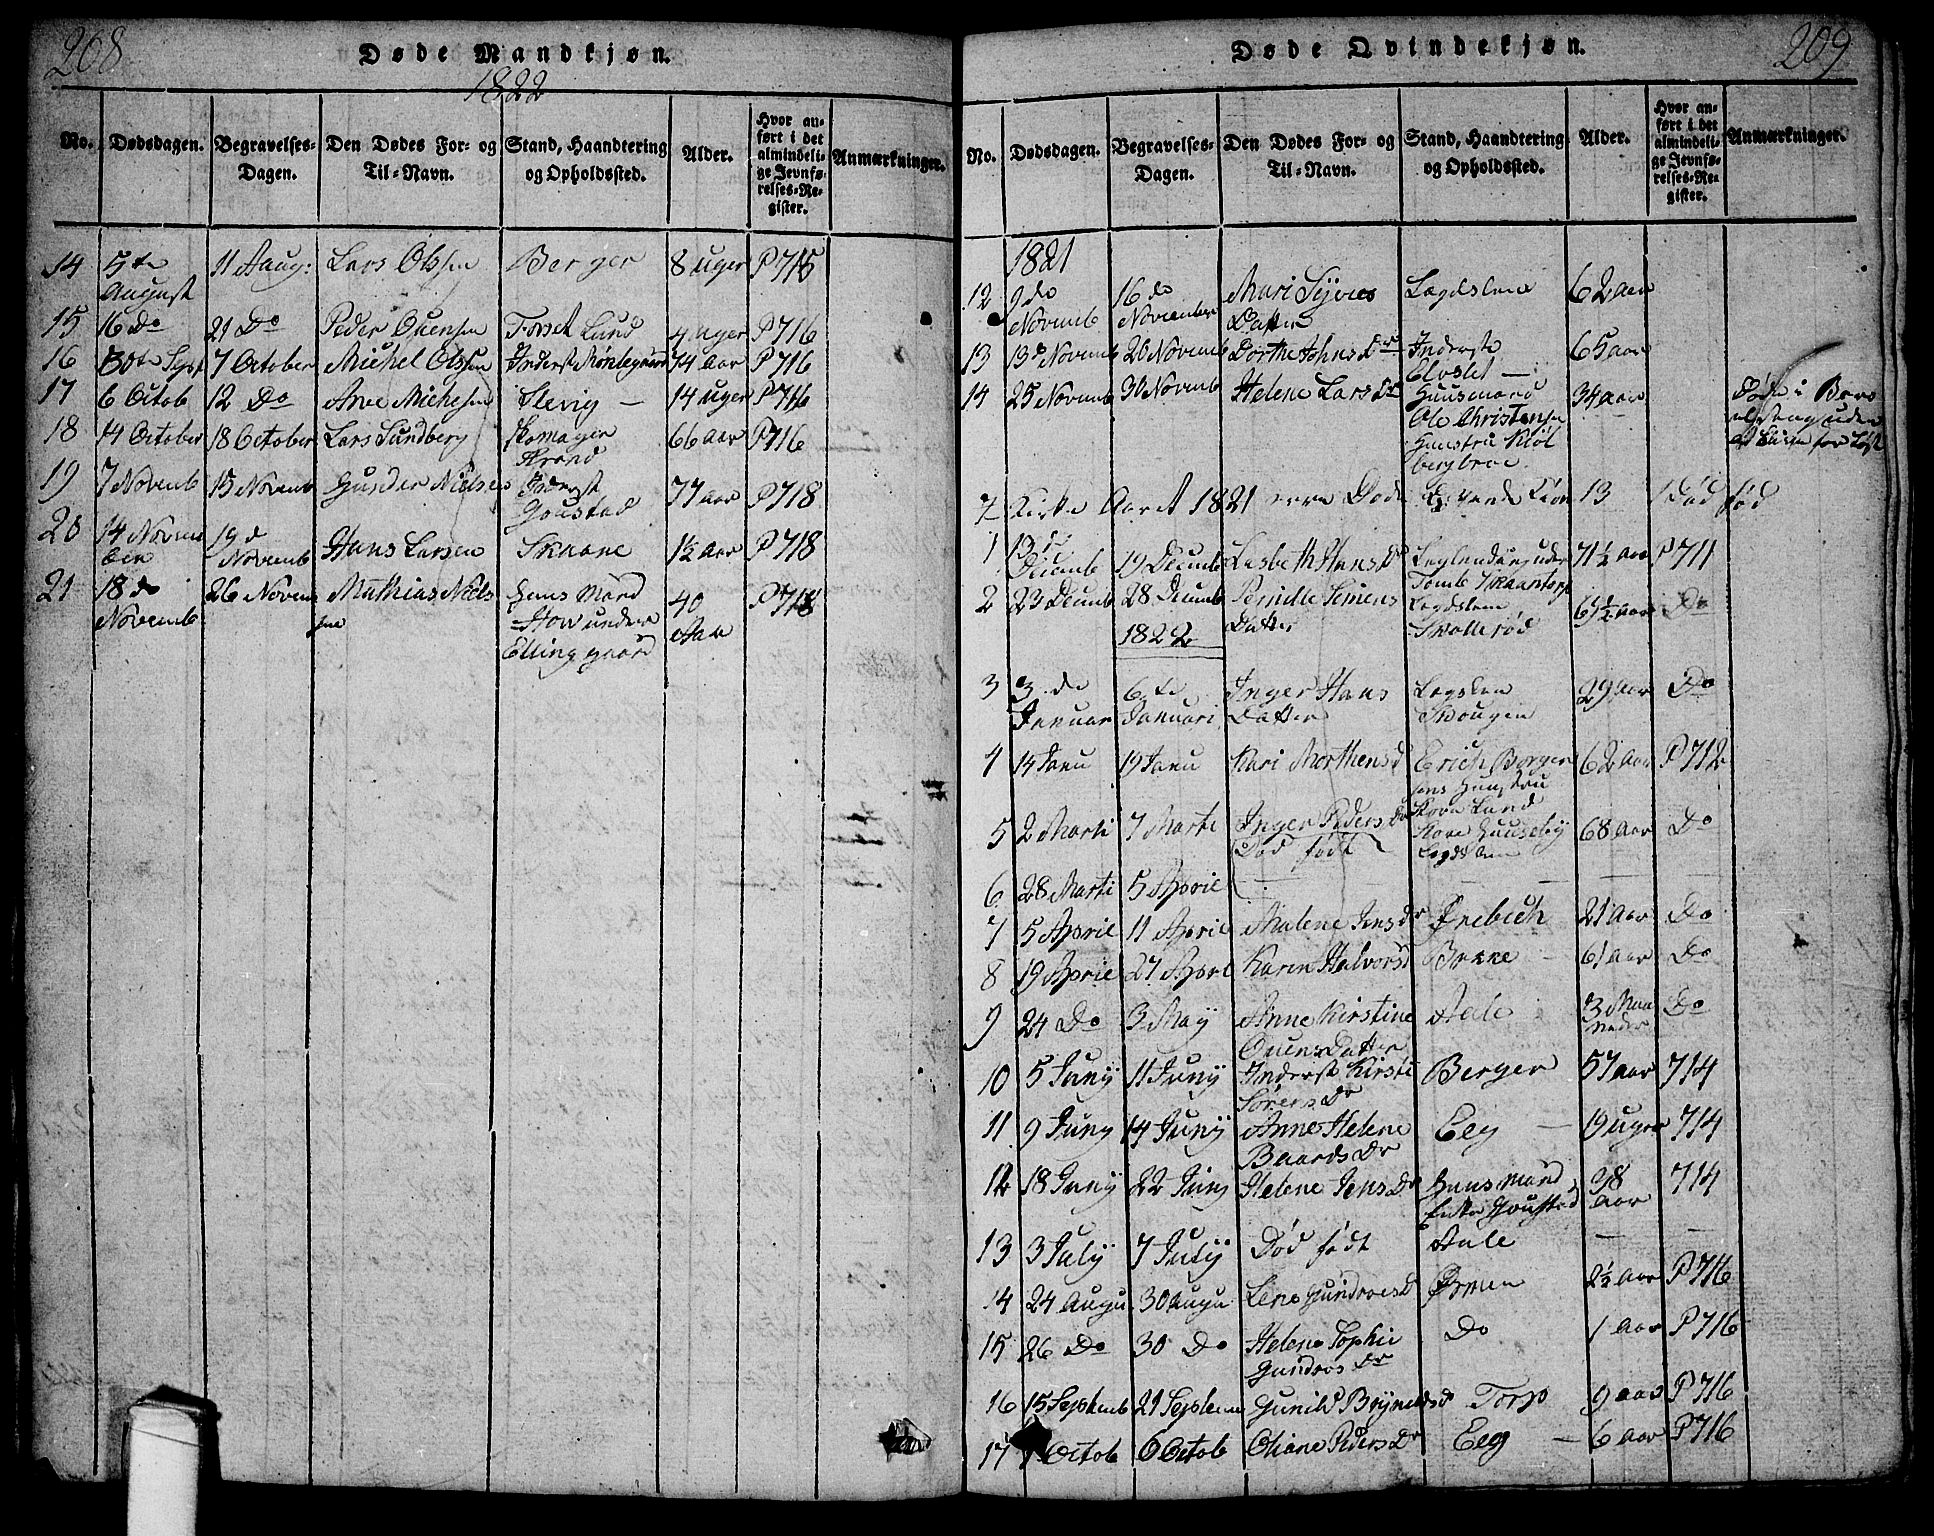 208
Døde Mandkjøn.
1822
No. Dødsdagen. Begravelses-Dagen. Den Dødes For- og Til-Navn. Stand, Haandtering og Opholdssted. Alder. Hvor anført i det almindelige Jevnførelses-Register. Anmærkninger.
14 5te August 11 Aaug: Lars Olssen Berger 8 uger P715
15 16 Do 21 Do Peder Ouensen Torset Lund 4 uger P716
16 30te Sept 7 October Michel Olssen Inderst 74 aar P716
17 6 Octob 12 Do Arve Michelsen Slevig — 14 uger P716
18 14 October 18 October Lars Sundberg Skomager Strand 66 aar P716
19 7 Novemb 15 Novemb Gunder Nielsen Inderst Goustad 77 aar P718
20 14 November 19 d Novemb Hans Larsen Skaane 1½ aar P718
21 18 do Novemb 26 Novem Mathias Nielssen Huus Mand How under Ellinggaard 40 Aar P718
209
Døde Qvindekjøn.
No. Dødsdagen. Begravelses-Dagen. Den Dødes For- og Til-Navn. Stand, Haandtering og Opholdssted. Alder. Hvor anført i det almindelige Jevnførelses-Register. Anmærkninger.
1821
12 9 do Novemb 16 do November Mari Datter Lægdslem 62 aar
13 13 d Novemb 20 Novemb Dorthe Johns Dr Inderste Elvslet — 65 aar
14 25 Novemb 30 Novemb Helene Lars Dr Huusmand Ole Christensen Huustru Kløl bergbroe 34 aar Døde i Barselseng uden at blive forløst
I Kirke Aaret 1821 ere Døde Qvinde Kiøn 13 1 Død fød
1 13 d Decemb 19 Decemb Lisbeth Hans D 71½ aar P711
2 23 Decemb 28 Decemb Pernille Simens Datter Lægdslem Skollerød 6½ aar Do
1822
3 3 de Januar 6 te Januari Inger Hans Datter Lægslem Skougen 29 aar Do
4 14 Janu 19 Janu Kari Morthens d Erich Borgersens Huustru Lund 62 aar P712
5 2 Marti 7 Marti Inger Peders Dr Huuseby Lægdslem 68 aar Do
Død født
6 28 Marti 5 Aprie — —
7 5 Aprie 11 Aprie Malene Jens Dr Ørebech 21 aar Do
8 19 Aprie 27 Aprie Karen Halvors d Brekke — 61 aar Do
9 24 Do 3 May Anne Kirstine Ouens Datter Aale 3 Maaneder Do
10 5 Juny 11 Juny Inderst Kirsti Sørens Dr Berger 57 aar 714
11 9 Juny 14 Juny Anne Helene Baards Dr Eeg — 19 uger 714
12 18 Juny 22 Juny Helene Jens Dr Huusmand Enke Goustad 38 aar 714
13 3 July 7 July Død født Aale — —
14 24 Augu 30 Augu Lene Gundroes D Ørmen 2½ aar P716
15 26 Do 30 Do Helene Sophie Gundros Dr Do 1 aar P716
16 15 Septemb 21 Septem Gunild Brynilds d Torp 9 aar P716
17 1 Octob 6 Octob Oliane Peders Dr Eeg — 6 aar P716